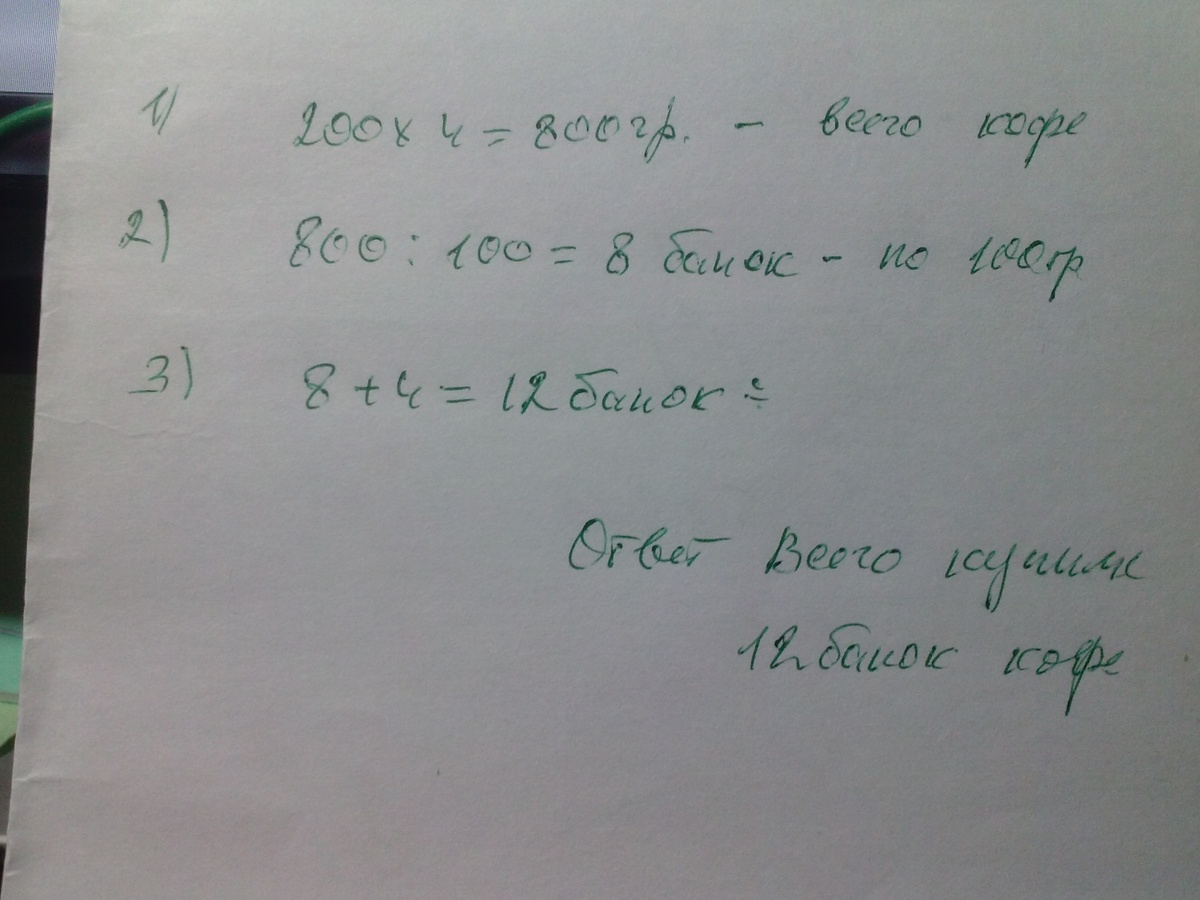 1) 200 x 4 = 800гр. - всего кофе
2) 800 : 100 = 8 банок - по 100гр
3) 8 + 4 = 12 банок ÷
Ответ Всего купили
12 банок кофе